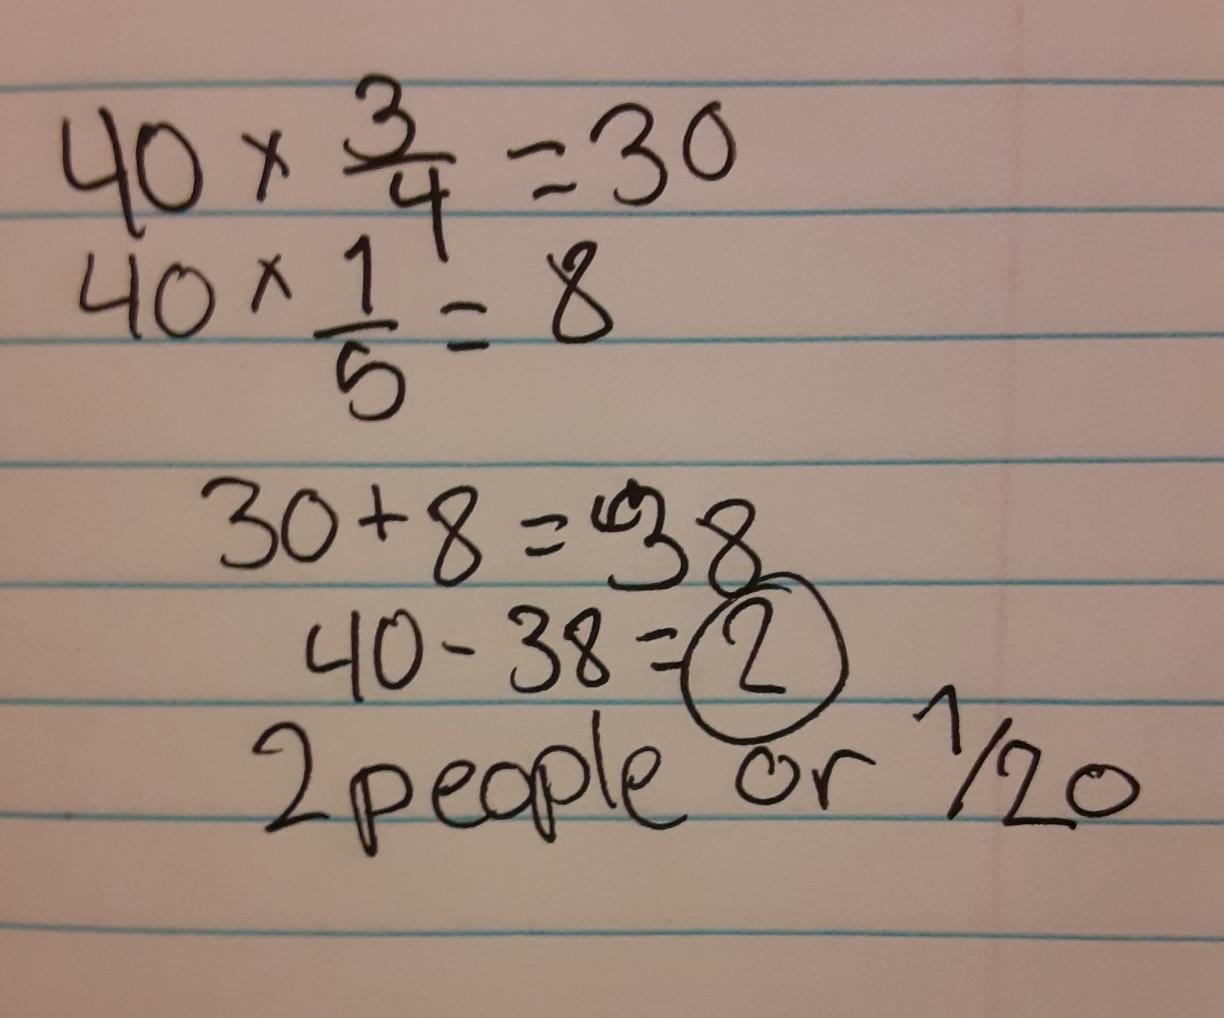 40 × 3/4 = 30
40 × 1/5 = 8
30 + 8 = 38
40 - 38 = 2
2 people or 1/20